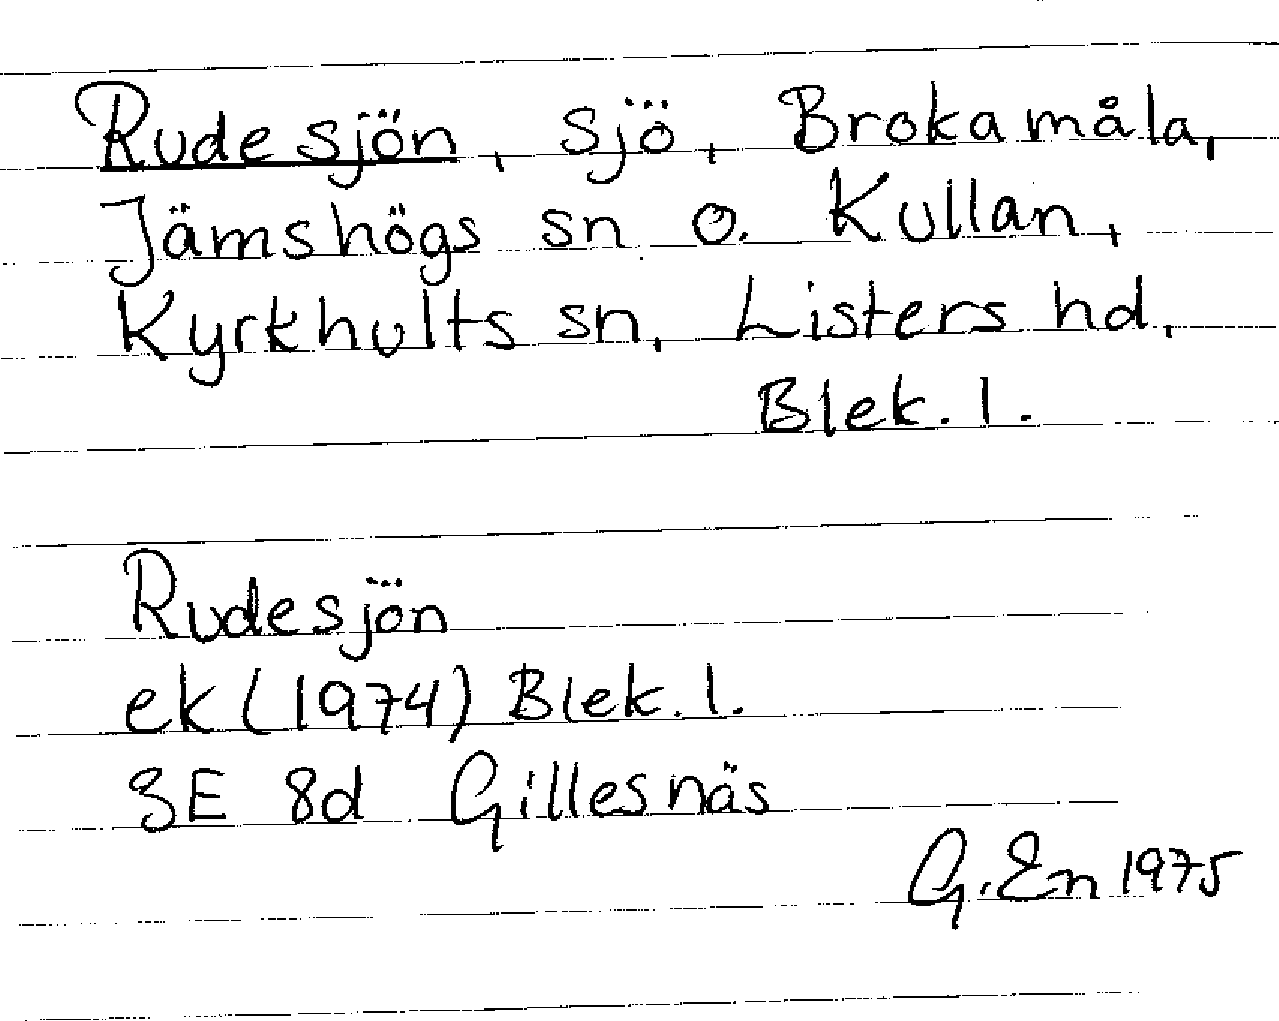 Rudesjön, sjö, Brokamåla,
Jämshögs sn o. Kullan,
Kyrkhults sn, Listers hd,
Blek. l.
Rudesjön
ek (1974) Blek. l.
3E 8d Gillesnäs
G. En 1975